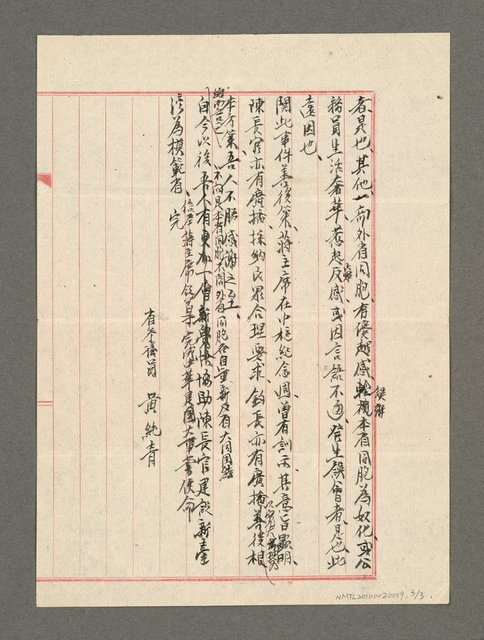 者是也、其他、一部外省同胞、有優越感、輕視本省同胞為奴化、或公
誤解
務員生活奢華、惹起反感、或因言語不通、發生誤會者是也、此
遠因也、
關此事件善後策、蔣主席在中樞紀念週、曾有訓示、其意旨顯明、
陳長官亦有廣播、採納民眾合理要求、部長亦有廣播善後根
本方策、吾人不勝感謝之至、
不問是本省同胞、不問外省同胞、各自重新及有大同團結
自今以後、吾人有更加一層、新覺悟、協助陳長官建設新臺
灣為模範省 完
省參議員 黃純青
NMTL20100020019, 3/3.